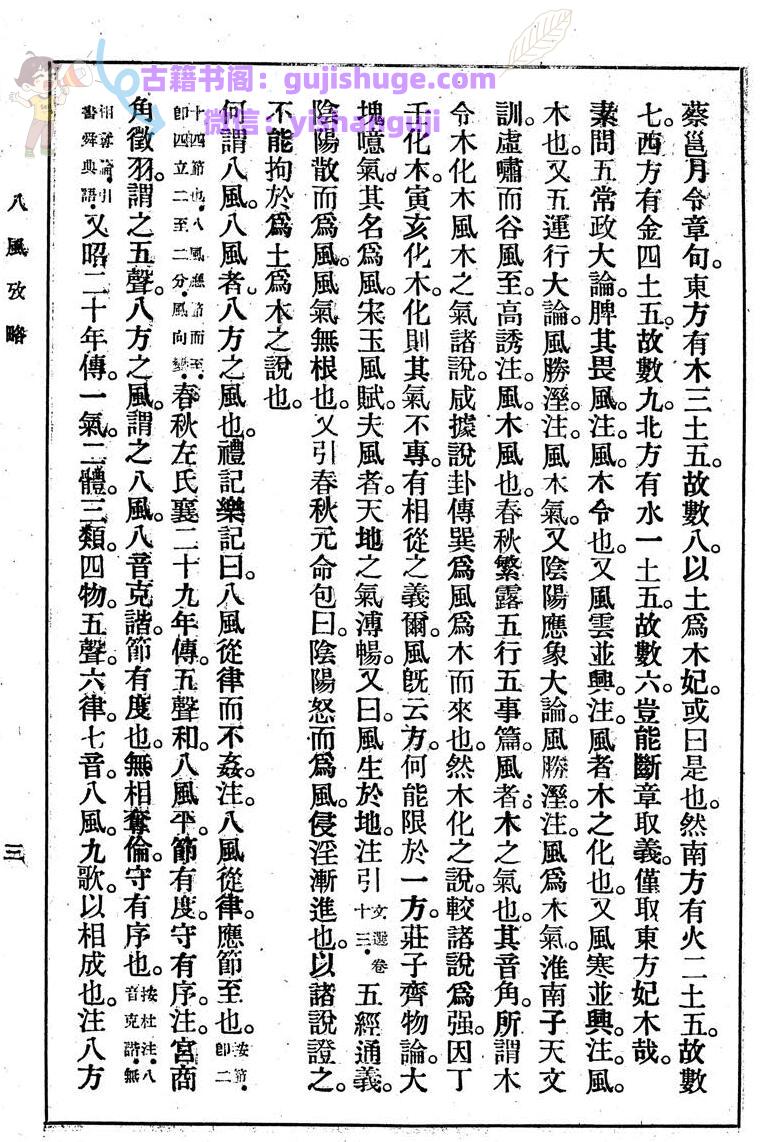 古籍书阁：gujishuge.com
微信：yishanguji
蔡邕月令章句。東方有木三土五。故數八以土爲木妃。或曰是也。然南方有火二土五。故數
七。西方有金四土五。故數九。北方有水一土五。故數六。豈能斷章取義。僅取東方妃木哉。
素問五常政大論。脾其畏風。注。風木令也。又風雲並興。注。風者木之化也。又風寒並興。注。風
木也。又五運行大論。風勝溼。注。風木氣。又陰陽應象大論。風勝溼。注。風爲木氣。淮南子天文
訓。虛嘯而谷風至。高誘注。風木風也。春秋繁露五行五事篇。風者。木之氣也。其音角。所謂木
令木化木風木之氣諸說。咸據說卦傳巽爲風爲木而來也。然木化之說。較諸說爲强。因丁
壬化木。寅亥化木。化則其氣不專。有相從之義爾。風旣云方。何能限於一方。莊子齊物論。大
塊噫氣。其名爲風。宋玉風賦。夫風者。天地之氣。溥暢。又曰。風生於地。注引文選卷十三。五經通義。
陰陽散而爲風。風氣無根也。又引春秋元命包曰。陰陽怒而爲風。侵淫漸進也。以諸說證之。
不能拘於爲土爲木之說也。
何謂八風。八風者。八方之風也。禮記樂記曰。八風從律而不姦。注。八風從律。應節至也。按節。卽二
十四節也。八風應節而至。卽四立二至二分。風向變。春秋左氏襄二十九年傳。五聲和。八風平。節有度。守有序。注。宮商
角徵羽。謂之五聲。八方之風。謂之八風。八音克諧。節有度也。無相奪倫。守有序也。按杜注。八音克諧。無
相奪倫。引書舜典語。又昭二十年傳。一氣二體三類四物五聲六律七音八風九歌。以相成也。注。八方
八風攷略
三